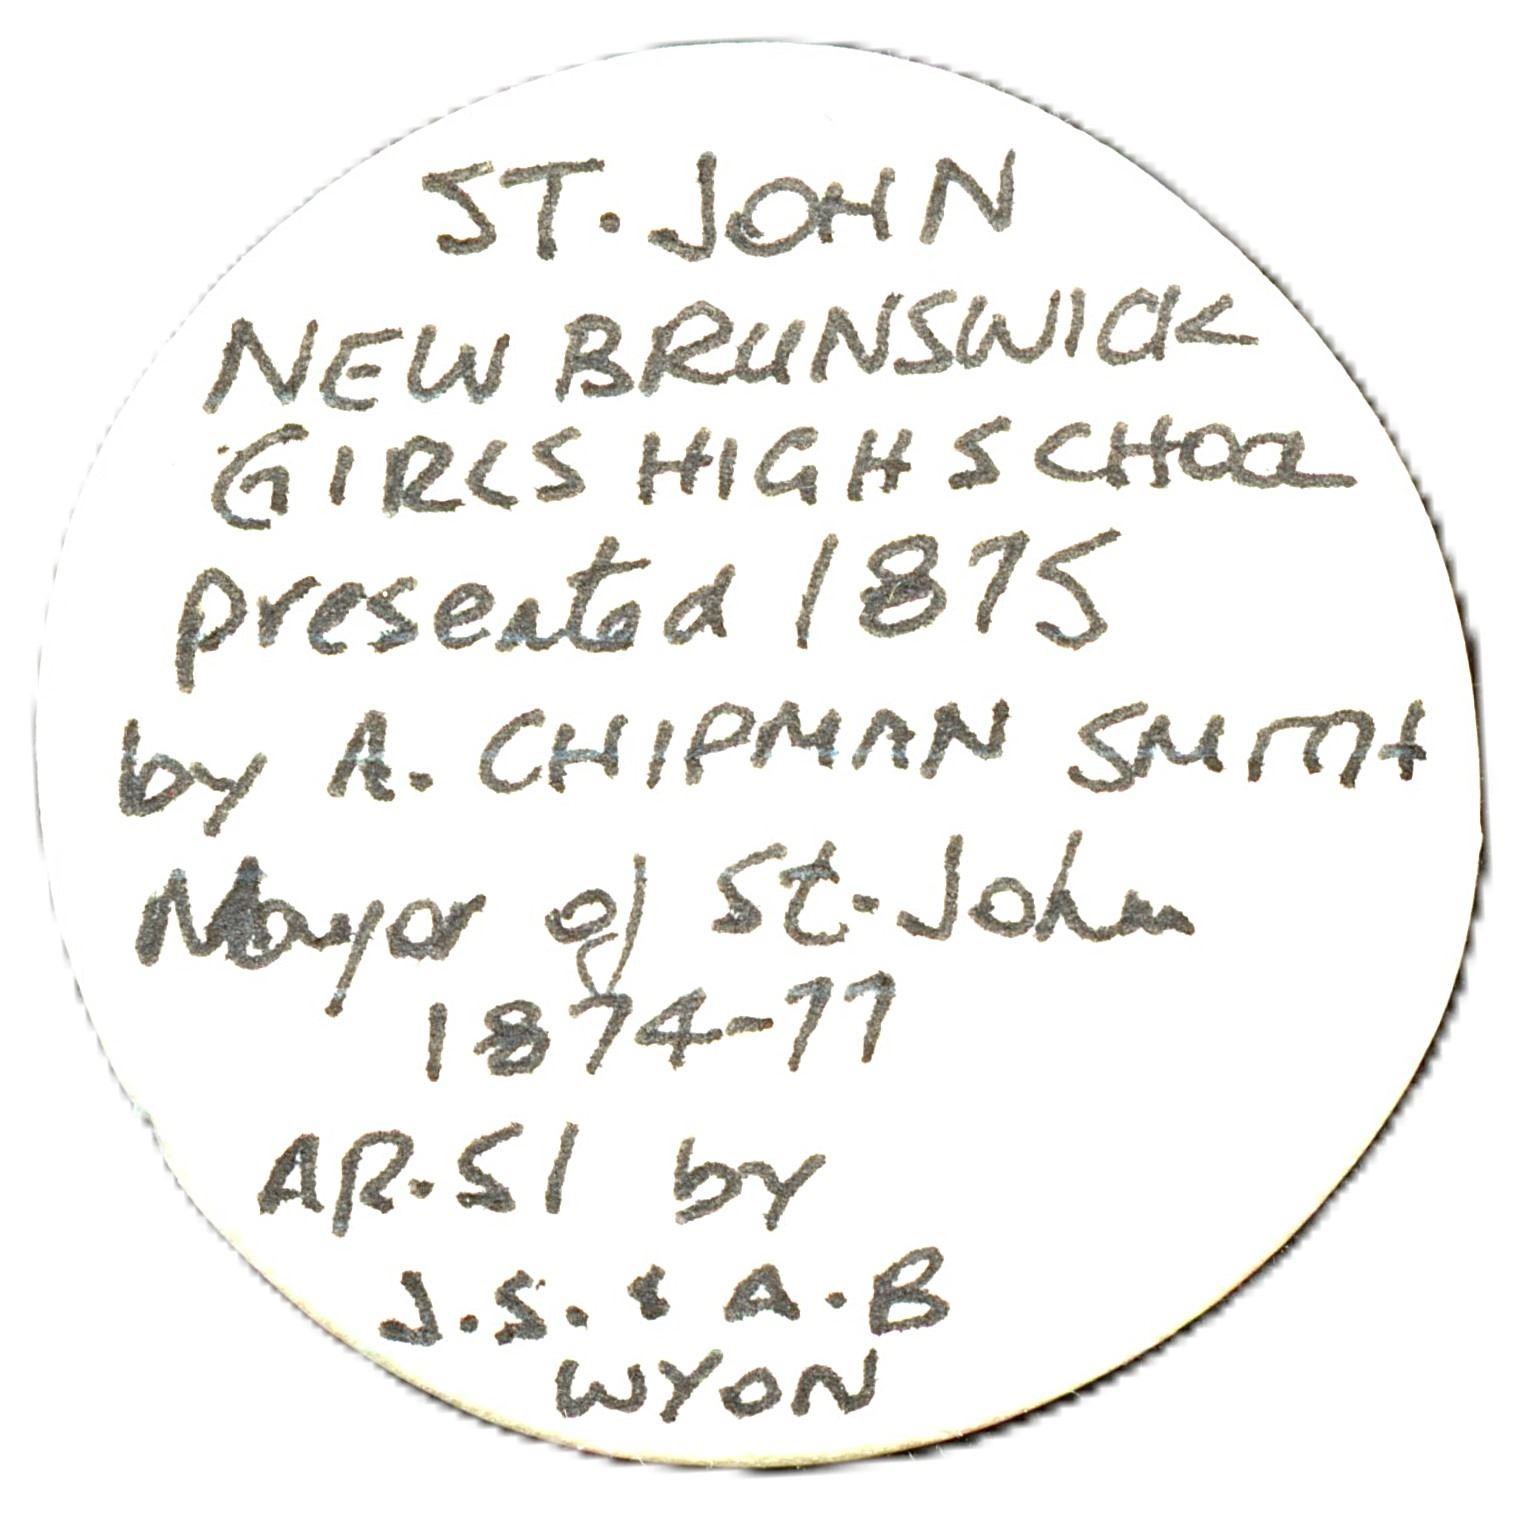 ST. JOHN
NEW BRUNSWICK
GIRLS HIGH SCHOOL
presented 1875
by A. CHIPMAN SMITH
Mayor of St. John
1874-77
AR. 51 by
J.S. & A.B
WYON